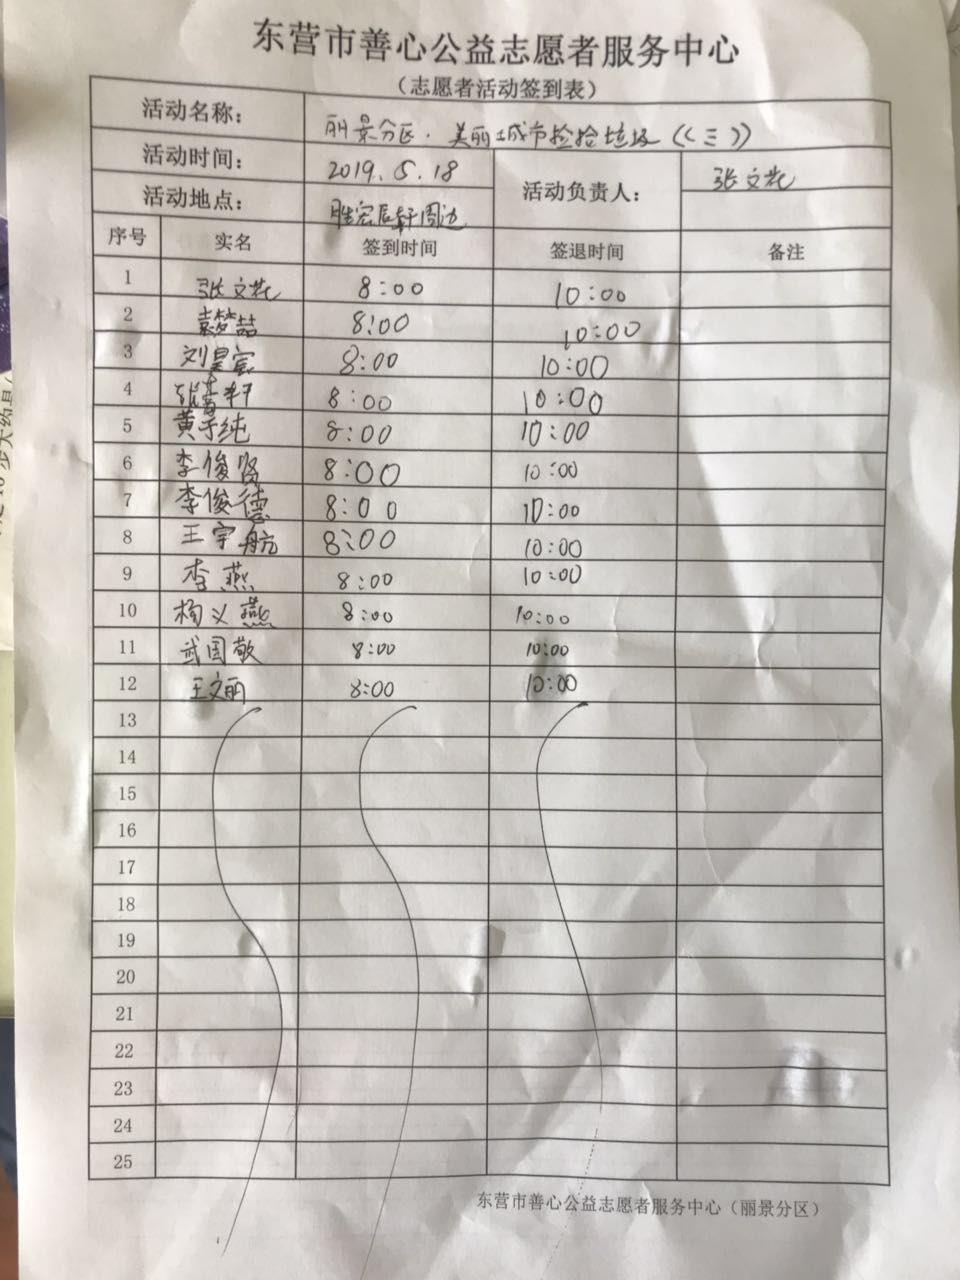 东营市善心公益志愿者服务中心
（志愿者活动签到表）
活动名称： 丽景分区·美丽城市捡拾垃圾《（三）》
活动时间： 2019.5.18 活动负责人： 张文花
活动地点： 胜宏辰轩周边
序号 实名 签到时间 签退时间 备注
1 张文花 8:00 10:00
2 袁梦喆 8:00 10:00
3 刘昊宸 8:00 10:00
4 8:00 10:00
5 黄子纯 8:00 10:00
6 李俊贤 8:00 10:00
7 李俊德 8:00 10:00
8 王宇航 8:00 10:00
9 李燕 8:00 10:00
10 杨义燕 8:00 10:00
11 武国敬 8:00 10:00
12 王文丽 8:00 10:00
13
14
15
16
17
18
19
20
21
22
23
24
25
东营市善心公益志愿者服务中心（丽景分区）